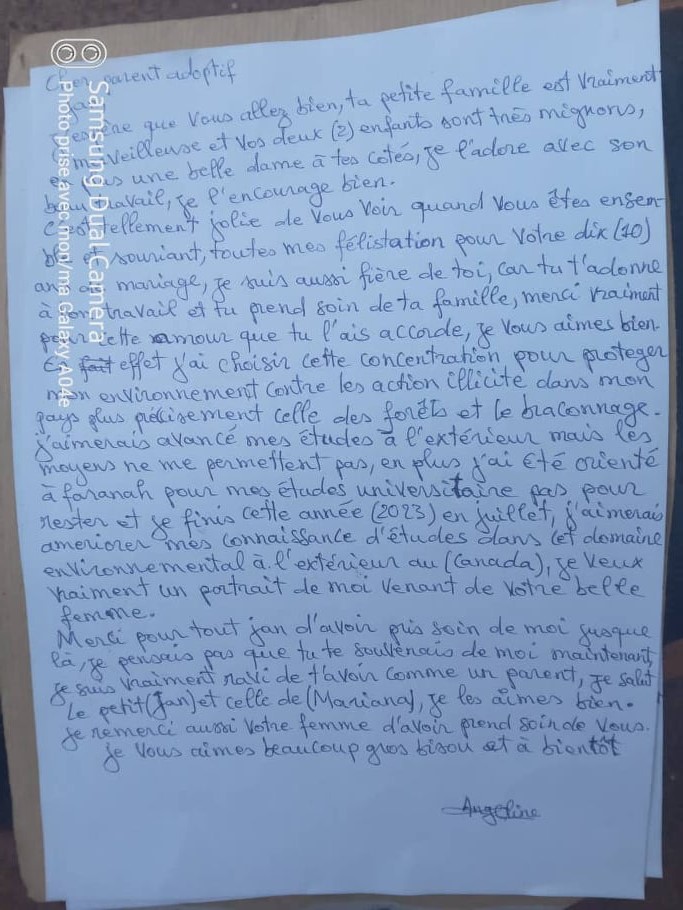 Cher parent adoptif
J'espère que vous allez bien, ta petite famille est vraiment
merveilleuse et vos deux (2) enfants sont très mignons,
en plus une belle dame à tes cotés, je l'adore avec son
beau travail, je l'encourage bien.
C'est tellement jolie de vous voir quand vous êtes ensem-
ble et souriant, toutes mes félistation pour votre dix (10)
ans de mariage, je suis aussi fière de toi, car tu t'adonne
à ton travail et tu prend soin de ta famille, merci vraiment
pour cette amour que tu l'ais accorde, je vous aimes bien.
En fait effet j'ai choisir cette concentration pour proteger
mon environnement contre les action illicite dans mon
pays plus précisement celle des forêts et le braconnage.
j'aimerais avancé mes études à l'extérieur mais les
moyens ne me permettent pas, en plus j'ai été orienté
à faranah pour mes études universitaire pas pour
rester et je finis cette année (2023) en juillet, j'aimerais
ameriorer mes connaissance d'études dans cet domaine
environnemental à l'extérieur au (Canada), je veux
vraiment un portrait de moi venant de votre belle
femme.
Merci pour tout jan d'avoir pris soin de moi jusque
là, je pensais pas que tu te souvenais de moi maintenant,
je suis vraiment ravi de t'avoir comme un parent, je salut
le petit (Jan) et celle de (Mariana), je les aimes bien.
je remerci aussi votre femme d'avoir prend soin de vous.
je vous aimes beaucoup gros bisou et à bientôt
Angeline
Samsung Dual Camera
Photo prise avec mon/ma Galaxy A04e